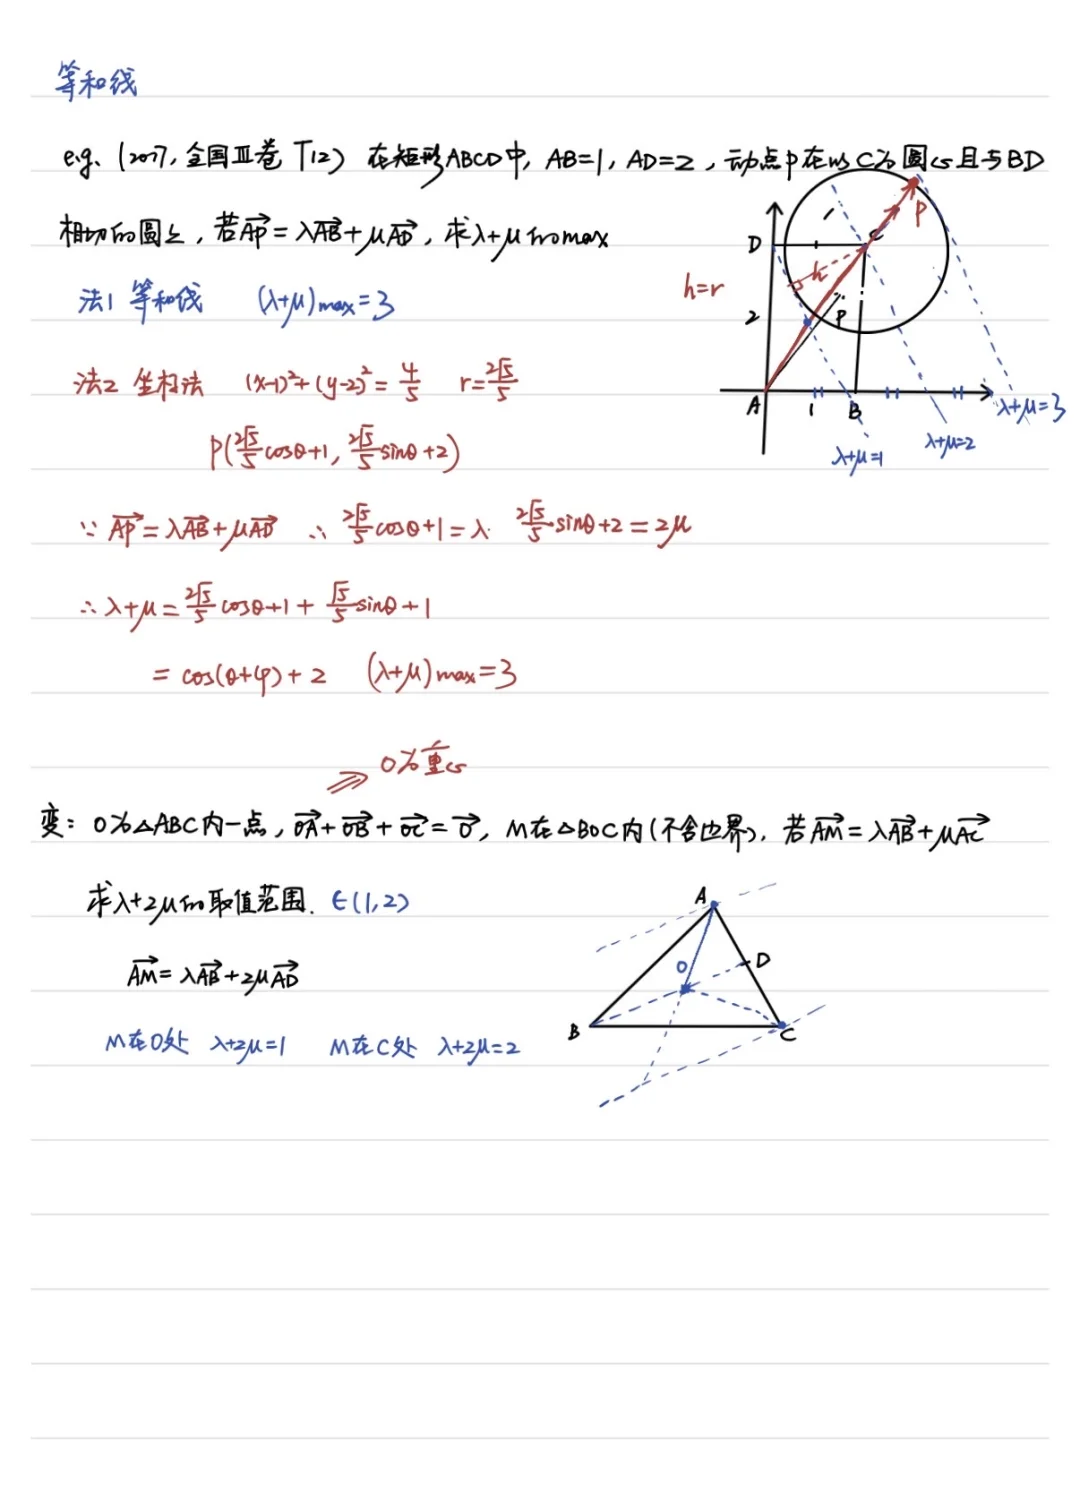 等和线
e.g. (2017, 全国Ⅲ卷 T12) 在矩形ABCD中, AB=1, AD=2, 动点P在以C为圆心且与BD
相切的圆上, 若AP→=λAB→+μAD→, 求λ+μ的max
法1 等和线 (λ+μ)max=3
法2 坐标法 (x-1)²+(y-2)²=4/5 r=2√5/5
P(2√5/5 cosθ+1, 2√5/5 sinθ+2)
∵ AP→=λAB→+μAD→ ∴ 2√5/5 cosθ+1=λ. 2√5/5 sinθ+2=2μ
∴ λ+μ=2√5/5 cosθ+1+√5/5 sinθ+1
= cos(θ+φ)+2 (λ+μ)max=3
h=r
D
C
P
h
2
P
A
1
B
λ+μ=1
λ+μ=2
λ+μ=3
⇒ O为重心
变: O为△ABC内一点, OA→+OB→+OC→=0→, M在△BOC内(不含边界), 若AM→=λAB→+μAC→
求λ+2μ的取值范围. ∈(1,2)
AM→=λAB→+2μAD→
M在O处 λ+2μ=1 M在C处 λ+2μ=2
A
D
O
B
C